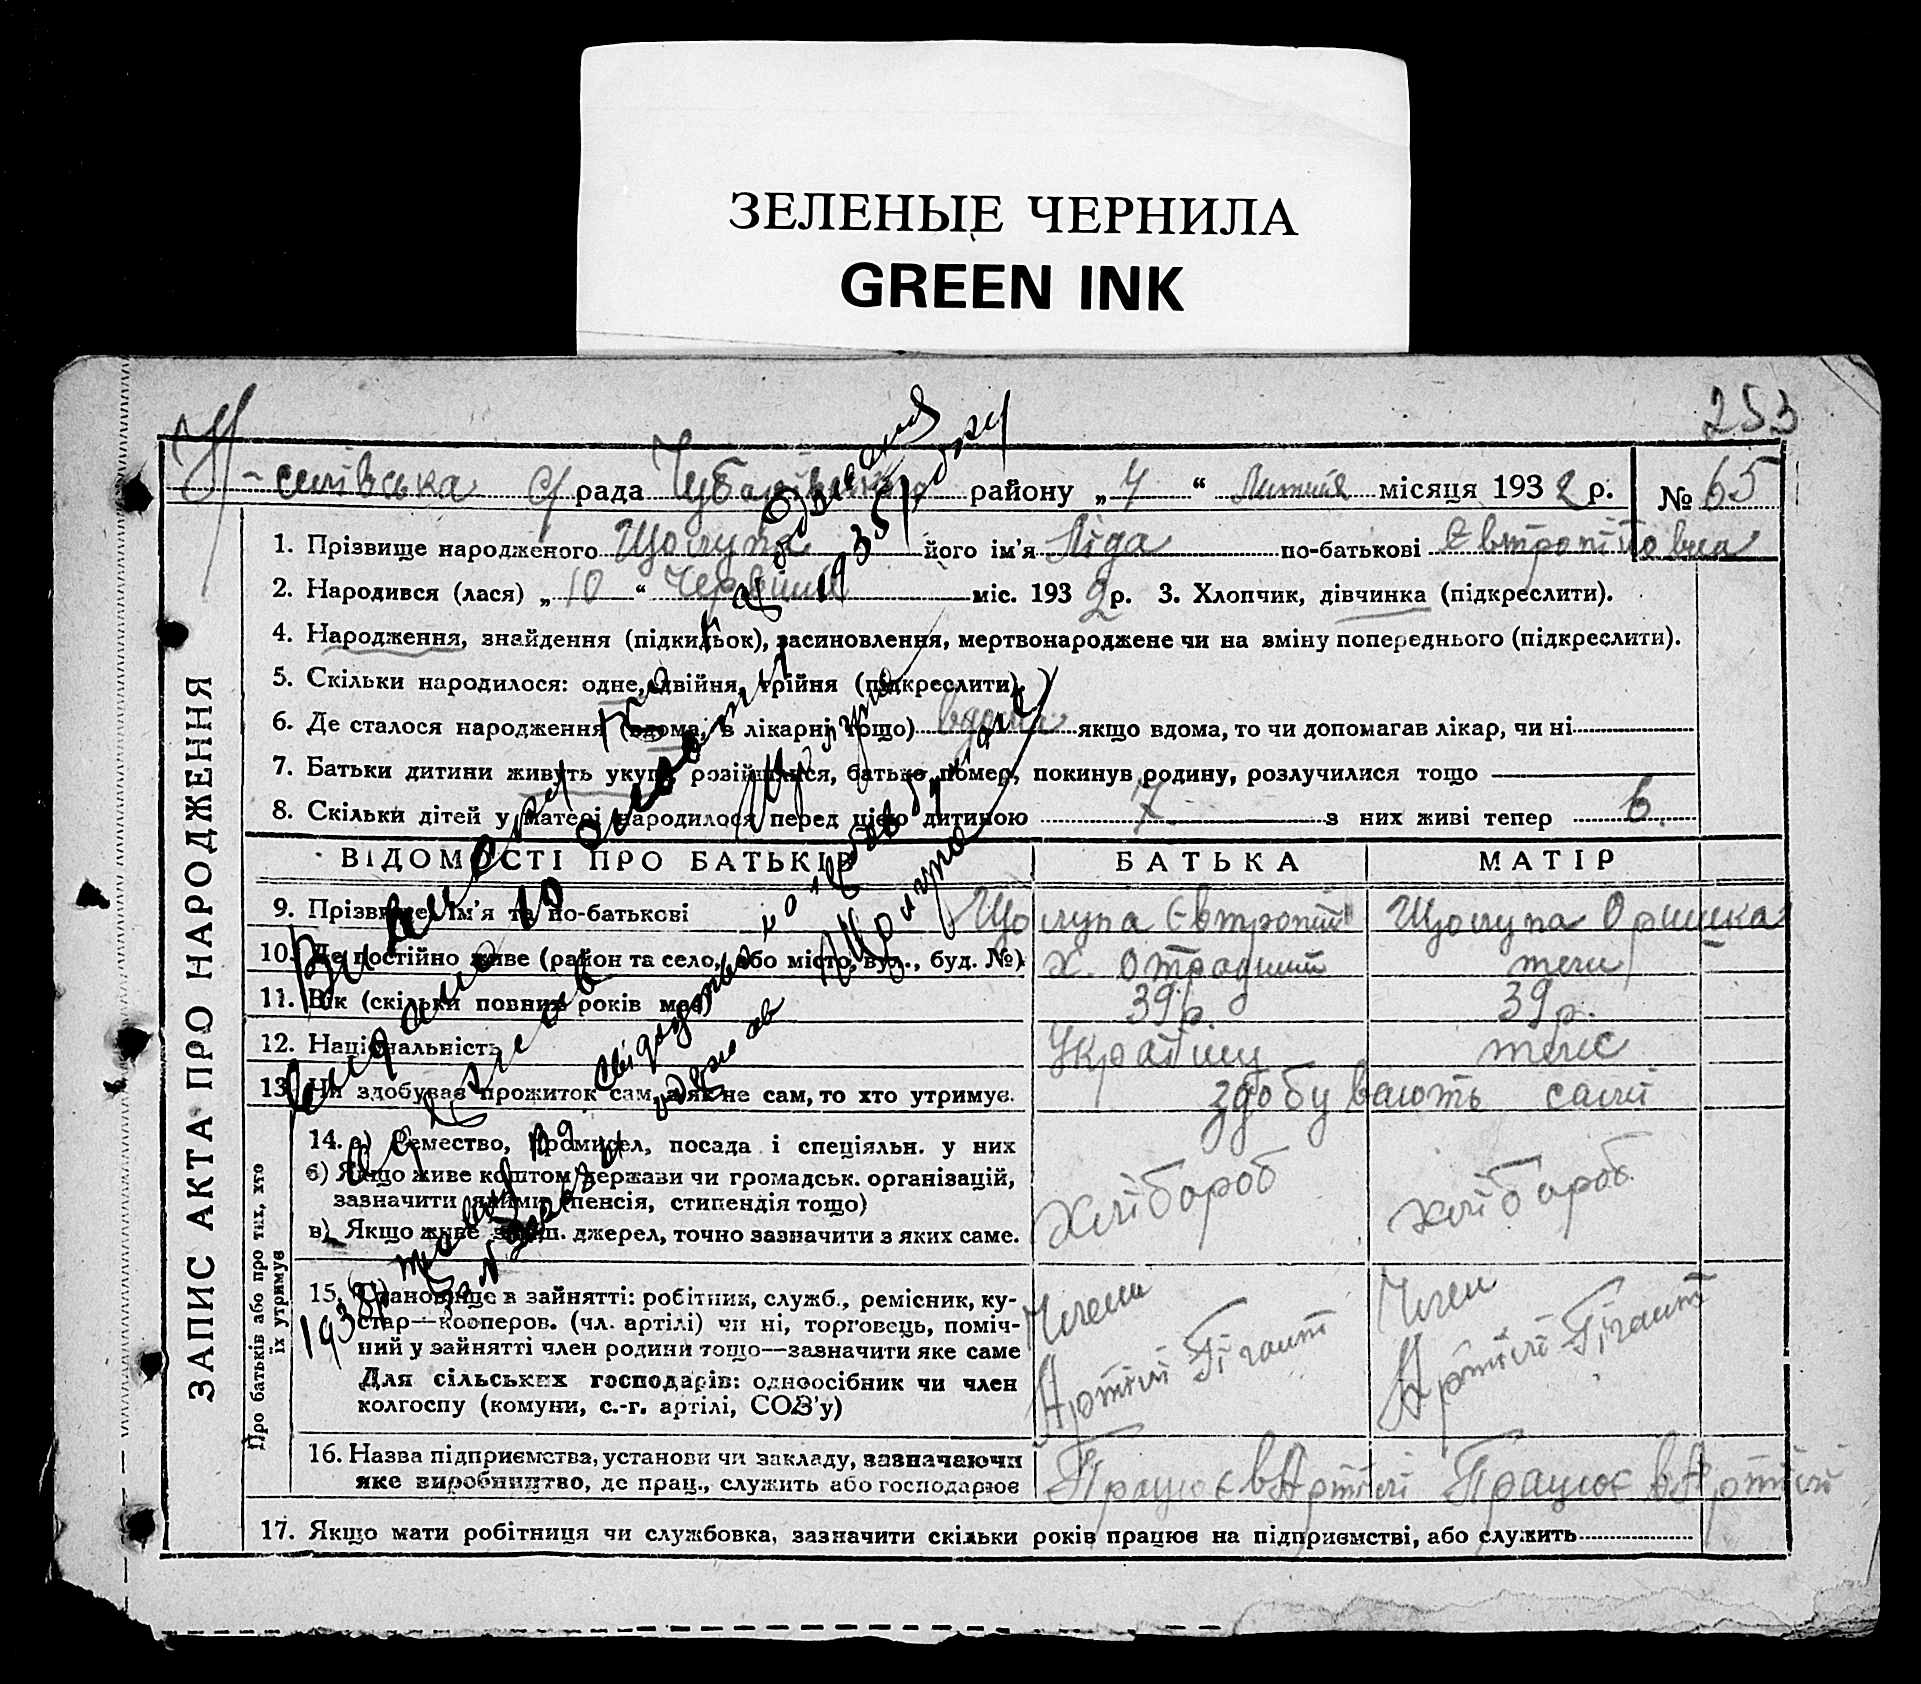 ЗЕЛЕНЫЕ ЧЕРНИЛА
GREEN INK
253
Н-селівська с/ рада Чубарівського району „ 4 “ Липня місяця 1932 р. № 65
ЗАПИС АКТА ПРО НАРОДЖЕННЯ
1. Прізвище народженого Щолупа його ім'я Ліда по-батькові Євтропійовна
2. Народився (лася) „ 10 “ Червння міс. 1932 р. 3. Хлопчик, дівчинка (підкреслити).
4. Народження, знайдення (підкидьок), засиновлення, мертвонароджене чи на зміну попереднього (підкреслити).
5. Скільки народилося: одне, двійня, трійня (підкреслити)
6. Де сталося народження (вдома, в лікарні тощо) вдома якщо вдома, то чи допомагав лікар, чи ні
7. Батьки дитини живуть укупі, розійшлися, батько помер, покинув родину, розлучилися тощо
8. Скільки дітей у матері народилося перед цією дитиною 7 з них живі тепер 6.
ВІДОМОСТІ ПРО БАТЬКІВ БАТЬКА МАТІР
9. Прізвище, ім'я та по-батькові Щолупа Євтропій Щолупа Оришка
10. Де постійно живе (район та село, або місто, вул., буд. №) х. Отрадний теж
11. Вік (скільки повних років має) 39 р. 39 р.
12. Національність Україну теж
13. Чи здобуває прожиток сам, а як не сам, то хто утримує. здобувають самі
Про батьків або про тих, хто
їх утримує
14. а) Ремество, промисел, посада і спеціяльн. у них
б) Якщо живе коштом держави чи громадськ. організацій,
зазначити якими (пенсія, стипендія тощо)
в) Якщо живе з інш. джерел, точно зазначити з яких саме.
хлібороб хлібороб
15. Становище в зайнятті: робітник, служб., ремісник, ку-
стар—кооперов. (чл. артілі) чи ні, торговець, поміч-
ний у зайнятті член родини тощо—зазначити яке саме
Для сільських господарів: одноосібник чи член
колгоспу (комуни, с.-г. артілі, СОЗ'у)
Член Артілі Гігант Член Артілі Гігант
16. Назва підприємства, установи чи закладу, зазначаючи
яке виробництво, де прац., служить або господарює
Працює в Артілі Працює в Артілі
17. Якщо мати робітниця чи службовка, зазначити скільки років працює на підприємстві, або служить
1935
Щолупа
1938р
свідоцтво
одержав Щолупа